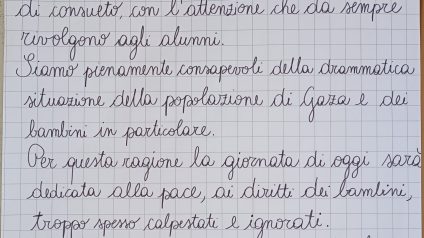 di consueto, con l'attenzione che da sempre
rivolgono agli alunni.
Siamo pienamente consapevoli della drammatica
situazione della popolazione di Gaza e dei
bambini in particolare.
Per questa ragione la giornata di oggi sarà
dedicata alla pace, ai diritti dei bambini,
troppo spesso calpestati e ignorati.